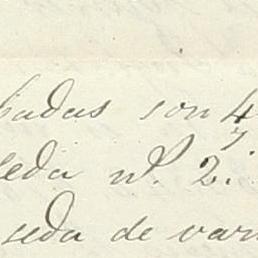 badas son 4
seda nº. 2.
seda de var